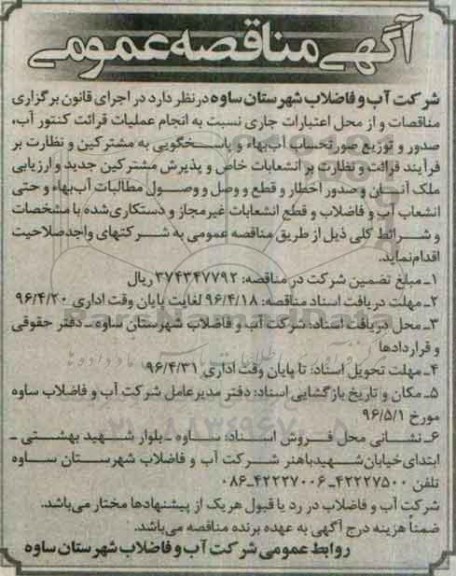 آگهی مناقصه عمومی
شرکت آب و فاضلاب شهرستان ساوه در نظر دارد در اجرای قانون برگزاری
مناقصات و از محل اعتبارات جاری نسبت به انجام عملیات قرائت کنتور آب،
صدور و توزیع صورتحساب آب‌بهاء و پاسخگویی به مشترکین و نظارت بر
فرآیند قرائت و نظارت بر انشعابات خاص و پذیرش مشترکین جدید و ارزیابی
ملک آنان و صدور اخطار و قطع و وصل و وصول مطالبات آب‌بهاء و حتی
انشعاب آب و فاضلاب و قطع انشعابات غیرمجاز و دستکاری‌شده با مشخصات
و شرائط کلی ذیل از طریق مناقصه عمومی به شرکتهای واجدصلاحیت
اقدام‌نماید.
۱ـ مبلغ تضمین شرکت در مناقصه: ۳۷۴۳۴۷۷۹۲ ریال
۲ـ مهلت دریافت اسناد مناقصه: ۹۶/۴/۱۸ لغایت پایان وقت اداری ۹۶/۴/۲۰
۳ـ محل دریافت اسناد: شرکت آب و فاضلاب شهرستان ساوه ـ دفتر حقوقی
و قراردادها
۴ـ مهلت تحویل اسناد: تا پایان وقت اداری ۹۶/۴/۳۱
۵ـ مکان و تاریخ بازگشایی اسناد: دفتر مدیرعامل شرکت آب و فاضلاب ساوه
مورخ ۹۶/۵/۱
۶ـ نشانی محل فروش اسناد: ساوه ـ بلوار شهید بهشتی ـ
ابتدای خیابان‌شهیدباهنر شرکت آب و فاضلاب شهرستان ساوه
تلفن ۴۲۲۲۷۵۰۰ـ۴۲۲۲۷۰۰۶ـ۰۸۶
شرکت آب و فاضلاب در رد یا قبول هریک از پیشنهادها مختار می‌باشد.
ضمناً هزینه درج آگهی به عهده برنده مناقصه می‌باشد.
روابط عمومی شرکت آب و فاضلاب شهرستان ساوه
ParsNamadData